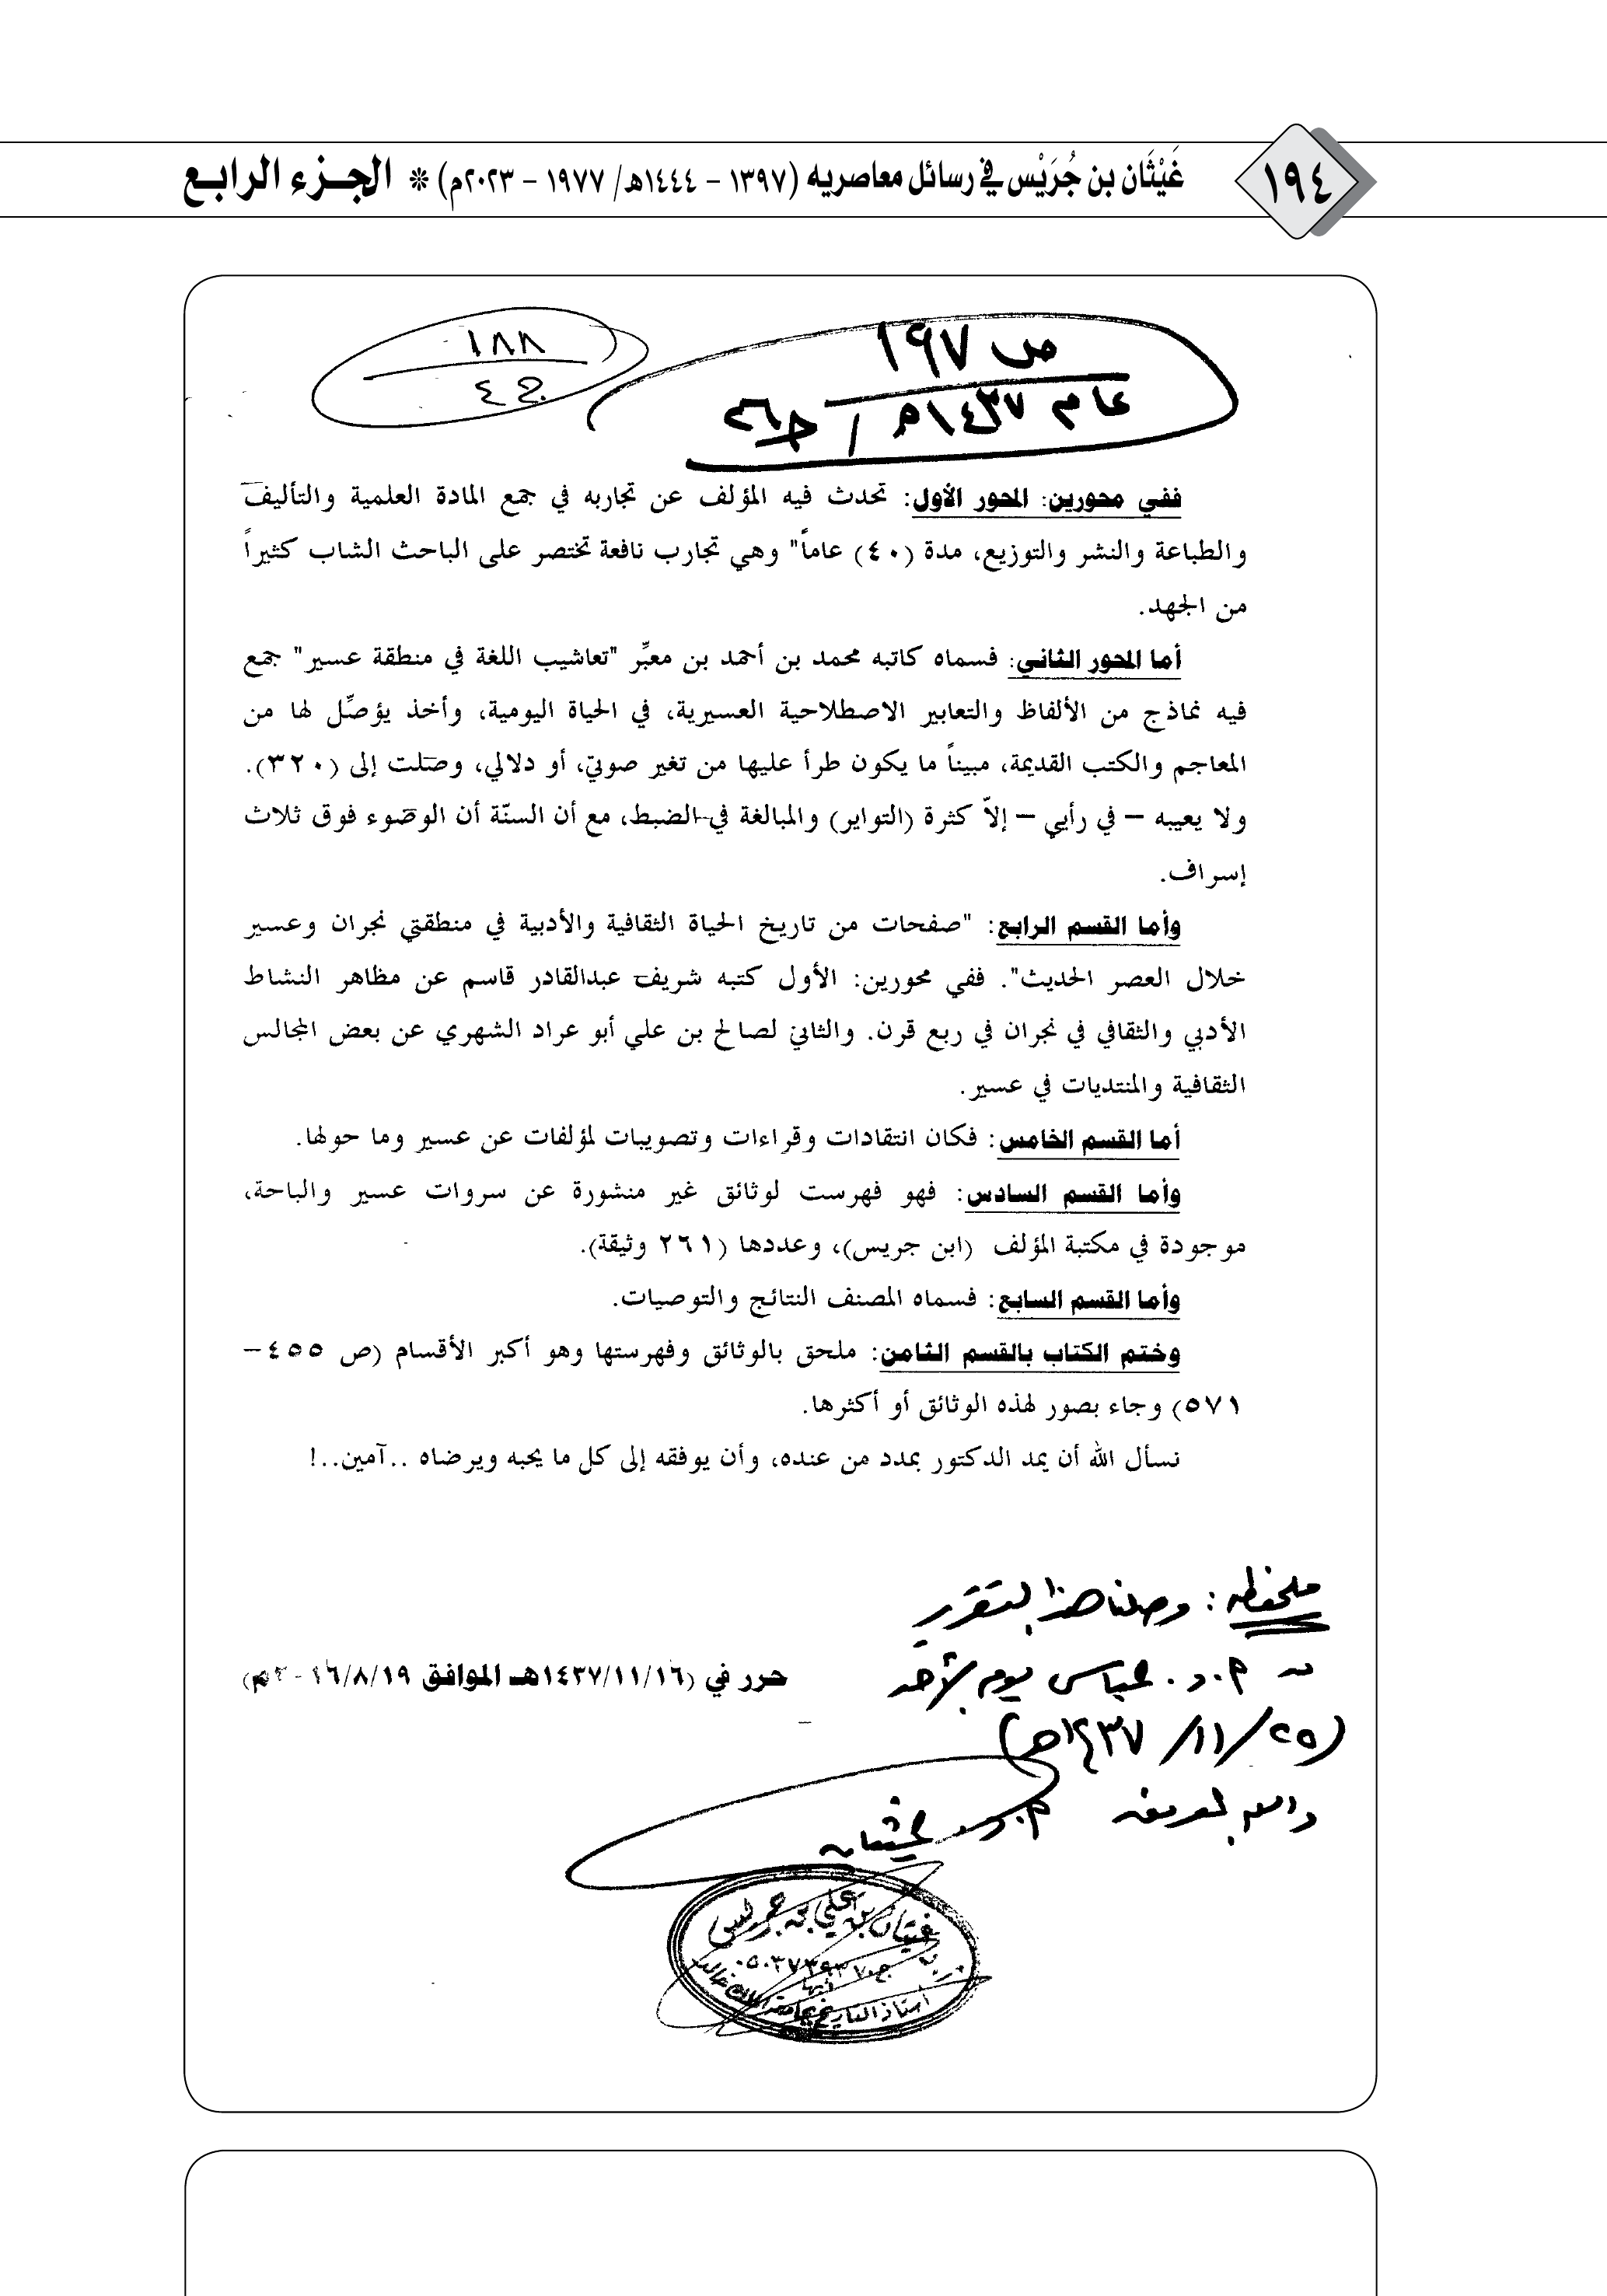 ١٩٤
غَيْثَان بن جُرَيْس في رسائل معاصريه (١٣٩٧ – ١٤٤٤هـ/ ١٩٧٧ – ٢٠٢٣م) * الجزء الرابع
ص ١٩٧
عام ١٤٣٧هـ / ج٢٦
١٨٨
ج ٤
ففي محورين: المحور الأول: تحدث فيه المؤلف عن تجاربه في جمع المادة العلمية والتأليف
والطباعة والنشر والتوزيع، مدة (٤٠) عاماً" وهي تجارب نافعة تختصر على الباحث الشاب كثيراً
من الجهد.
أما المحور الثاني: فسماه كاتبه محمد بن أحمد بن معبِّر "تعاشيب اللغة في منطقة عسير" جمع
فيه نماذج من الألفاظ والتعابير الاصطلاحية العسيرية، في الحياة اليومية، وأخذ يؤصّل لها من
المعاجم والكتب القديمة، مبيناً ما يكون طرأ عليها من تغير صوتي، أو دلالي، وصلت إلى (٣٢٠).
ولا يعيبه – في رأيي – إلاّ كثرة (التواير) والمبالغة في الضبط، مع أن السنّة أن الوضوء فوق ثلاث
إسراف.
وأما القسم الرابع: "صفحات من تاريخ الحياة الثقافية والأدبية في منطقتي نجران وعسير
خلال العصر الحديث". ففي محورين: الأول كتبه شريف عبدالقادر قاسم عن مظاهر النشاط
الأدبي والثقافي في نجران في ربع قرن. والثاني لصالح بن علي أبو عراد الشهري عن بعض المجالس
الثقافية والمنتديات في عسير.
أما القسم الخامس: فكان انتقادات وقراءات وتصويبات لمؤلفات عن عسير وما حولها.
وأما القسم السادس: فهو فهرست لوثائق غير منشورة عن سروات عسير والباحة،
موجودة في مكتبة المؤلف (ابن جريس)، وعددها (٢٦١ وثيقة).
وأما القسم السابع: فسماه المصنف النتائج والتوصيات.
وختم الكتاب بالقسم الثامن: ملحق بالوثائق وفهرستها وهو أكبر الأقسام (ص ٤٥٥–
٥٧١) وجاء بصور لهذه الوثائق أو أكثرها.
نسأل الله أن يمد الدكتور بمدد من عنده، وأن يوفقه إلى كل ما يحبه ويرضاه ..آمين..!
ملحظه: وصلنا هذا التقرير
من أ.د. عباس يوم الأحد
حرر في (١٤٣٧/١١/١٦هـ الموافق ١٦/٨/١٩-٢٠م)
(٢٥/ ١١/ ١٤٣٧هـ)
والله الموفق أ.د. غيثان
غيثان بن علي بن جريس
أبها
أستاذ التاريخ بجامعة الملك خالد